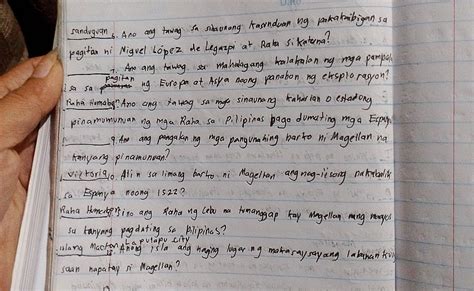 sanduguan 6. Ano ang tawag sa sinaunang kasunduan ng pakikaibigan sa
pagitan ni Miguel López de Legazpi at Raha Sikatuna?
7. Ano ang tawag sa mahalagang kalakalan ng mga pampal
isa sa pagitan ng Europa at Asya noong panahon ng eksplorasyon?
Raha Humabon Ano ang tawag sa mga sinaunang kaharian o estadong
pinamumunuan ng mga Raha sa Pilipinas bago dumating mga Espany
9. Ano ang pangalan ng mga pangunahing barko ni Magellan na
kanyang pinamunuan?
victoria 10. Alin sa limang barko ni Magellan ang nag-iisang nakabalik
sa Espanya noong 1522?
Raha Humabon Sino ang Raha ng Cebu na tumanggap kay Magellan nang
sa kanyang pagdating sa Pilipinas?
ulang Mactan Lapulapu city 12. Anong isla ang naging lugar ng makasaysayang labanan kung
saan napatay si Magellan?